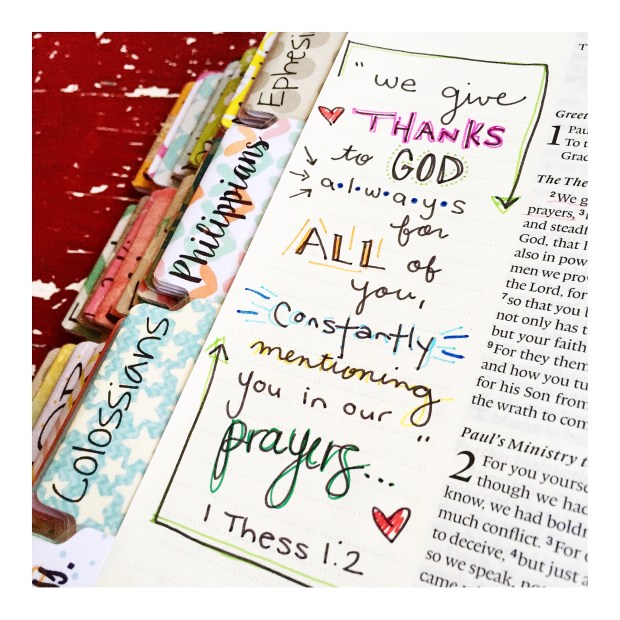 Ephesi
Philippians
Colossians
"we give
THANKS
to GOD
a·l·w·a·y·s
for
ALL of
you,
Constantly
mentioning
you in our
prayers..."
1 Thess 1:2
Greet
1 Pau
To t
Grac
The The
²We g
prayers, ³
and steadf
God, that
also in pow
men we pro
the Lord, for
⁷so that you b
not only has t
but your faith
⁹For they them
and how you tu
for his Son from
the wrath to com
Paul's Ministry t
2 For you yourse
though we had
know, we had boldn
much conflict. ³For
to deceive, ⁴but just a
so we speak, no
came